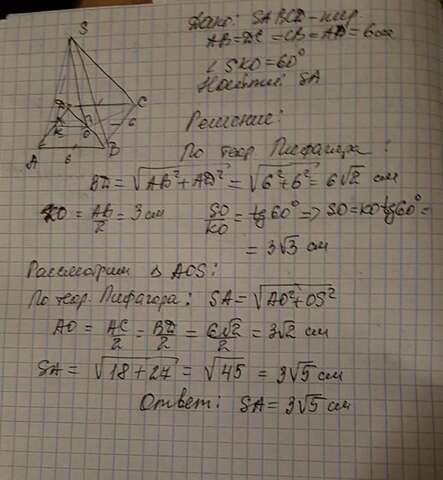 S
Дано: SABCD – пир.
AB=DC=CB=AD=6см
∠SKO=60°
Найти: SA
Решение:
По теор. Пифагора:
BD = √AB²+AD² = √6²+6² = 6√2 см
KO = AB/2 = 3 см SO/KO = tg60° => SO=KO·tg60° =
= 3√3 см
Рассмотрим Δ AOS:
По теор. Пифагора: SA = √AO²+OS²
AO = AC/2 = BD/2 = 6√2/2 = 3√2 см
SA = √18+27 = √45 = 3√5 см
Ответ: SA = 3√5 см
D
C
K
O
6
A
6
B